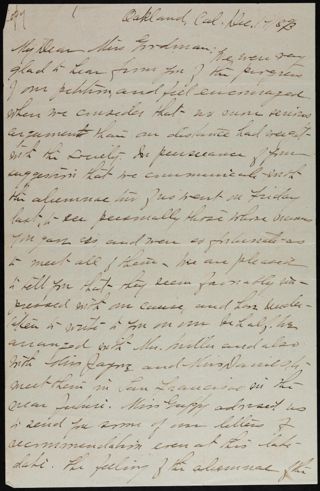 Oakland, Cal. Dec. 17, 93
My Dear Miss Goodman;
We were very
glad to hear from you of the progress
of our petition and feel encouraged
when we consider that no more serious
argument than our distance had weight
with the Council. In pursuance of your
suggestion that we communicate with
the alumnae two of us went on Friday
last, to see personally those whose names
you gave us and were so fortunate as
to meet all of them. We are pleased
to tell you that they seem favorably im-
pressed with our cause and
to write to you on our behalf. We
arranged with Mrs. Miller and also
with Miss and to
meet them in San Francisco in the
near future. Miss advised us
to send you some of our letters of
recommendation even at this late
date. The feeling of the alumnae of the